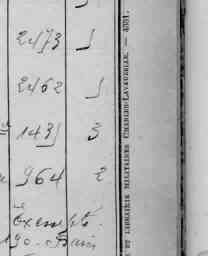 2473 1
2462 1
1431 3
964 2
Exempté
190. Bain
ET LIBRAIRIE MILITAIRES CHARLES-LAVAUZELLE. — 4331.